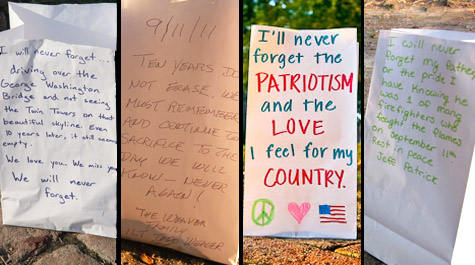 I will never forget...
driving over the
George Washington
Bridge and not seeing
the Twin Towers on that
beautiful skyline. Even
10 years later, it still seems
empty.
We love you. We miss you
We will never
forget.
9/11/11
TEN YEARS DO
NOT ERASE. WE
MUST REMEMBER
AND CONTINUE TO
SACRIFICE TO THE
DAY WE WILL
KNOW - NEVER
AGAIN!
THE WEAVER
FAMILY
I'll never
forget the
PATRIOTISM
and the
LOVE
I feel for my
COUNTRY.
I will never
forget my father
or the pride I
have knowing he
was 1 of many
firefighters who
fought the flames
on September 11th
Rest in peace
Jeff Patrick